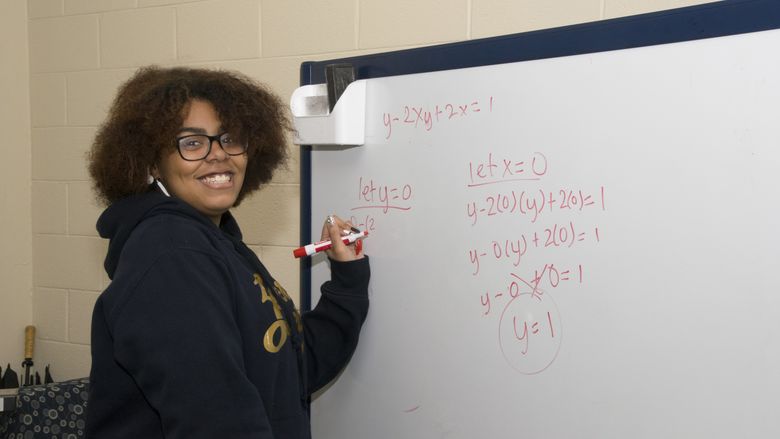 y-2xy+2x=1
let y=0
0-(2
let x=0
y-2(0)(y)+2(0)=1
y-0(y)+2(0)=1
y-0+0=1
y=1